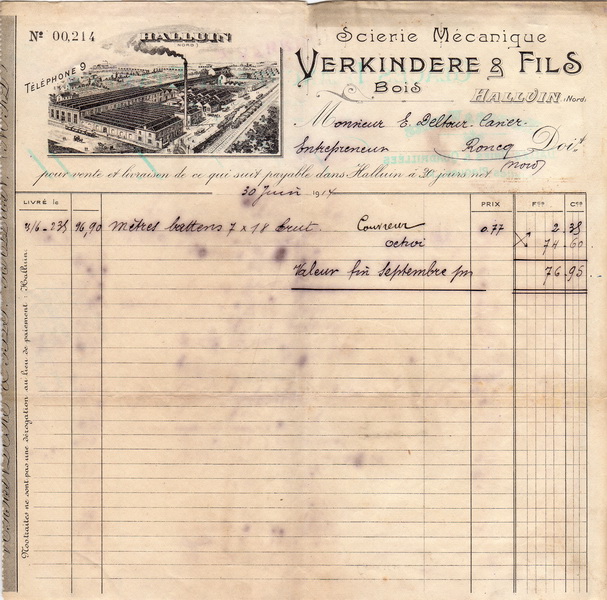 Nº 00,214
HALLUIN
(NORD)
TÉLÉPHONE 9
Scierie Mécanique
VERKINDERE & FILS
BOIS
HALLUIN (Nord)
Monsieur E. Deltour-Carrer
Entrepreneur Roncq Doit
(Nord)
pour vente et livraison de ce qui suit payable dans Halluin à 30 jours net
30 Juin 1914
LIVRÉ le PRIX Fcs Cts
96,90 Mètres battens 7 x 18 brut. Couvreur 0.77 2.35
octroi 74 60
Valeur fin Septembre pn 76.95
Nos traites ne sont pas une dérogation au lieu de paiement : Halluin.